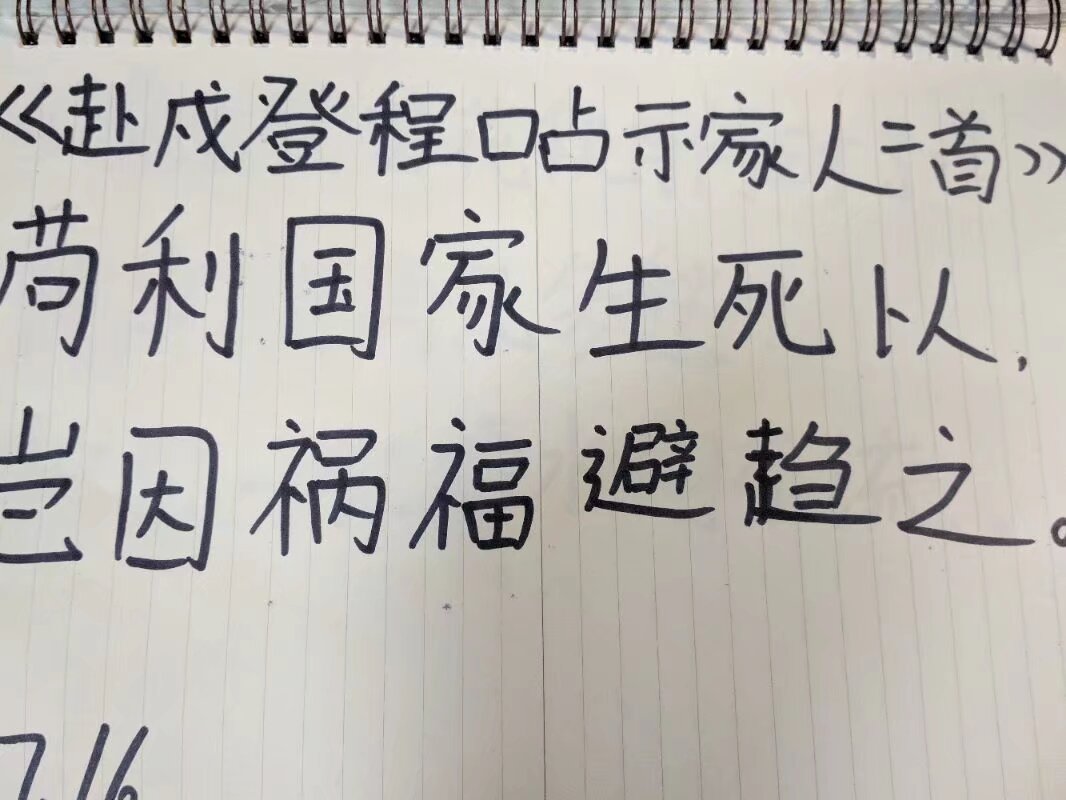 《赴戍登程口占示家人二首》
苟利国家生死以,
岂因祸福避趋之。
7.16